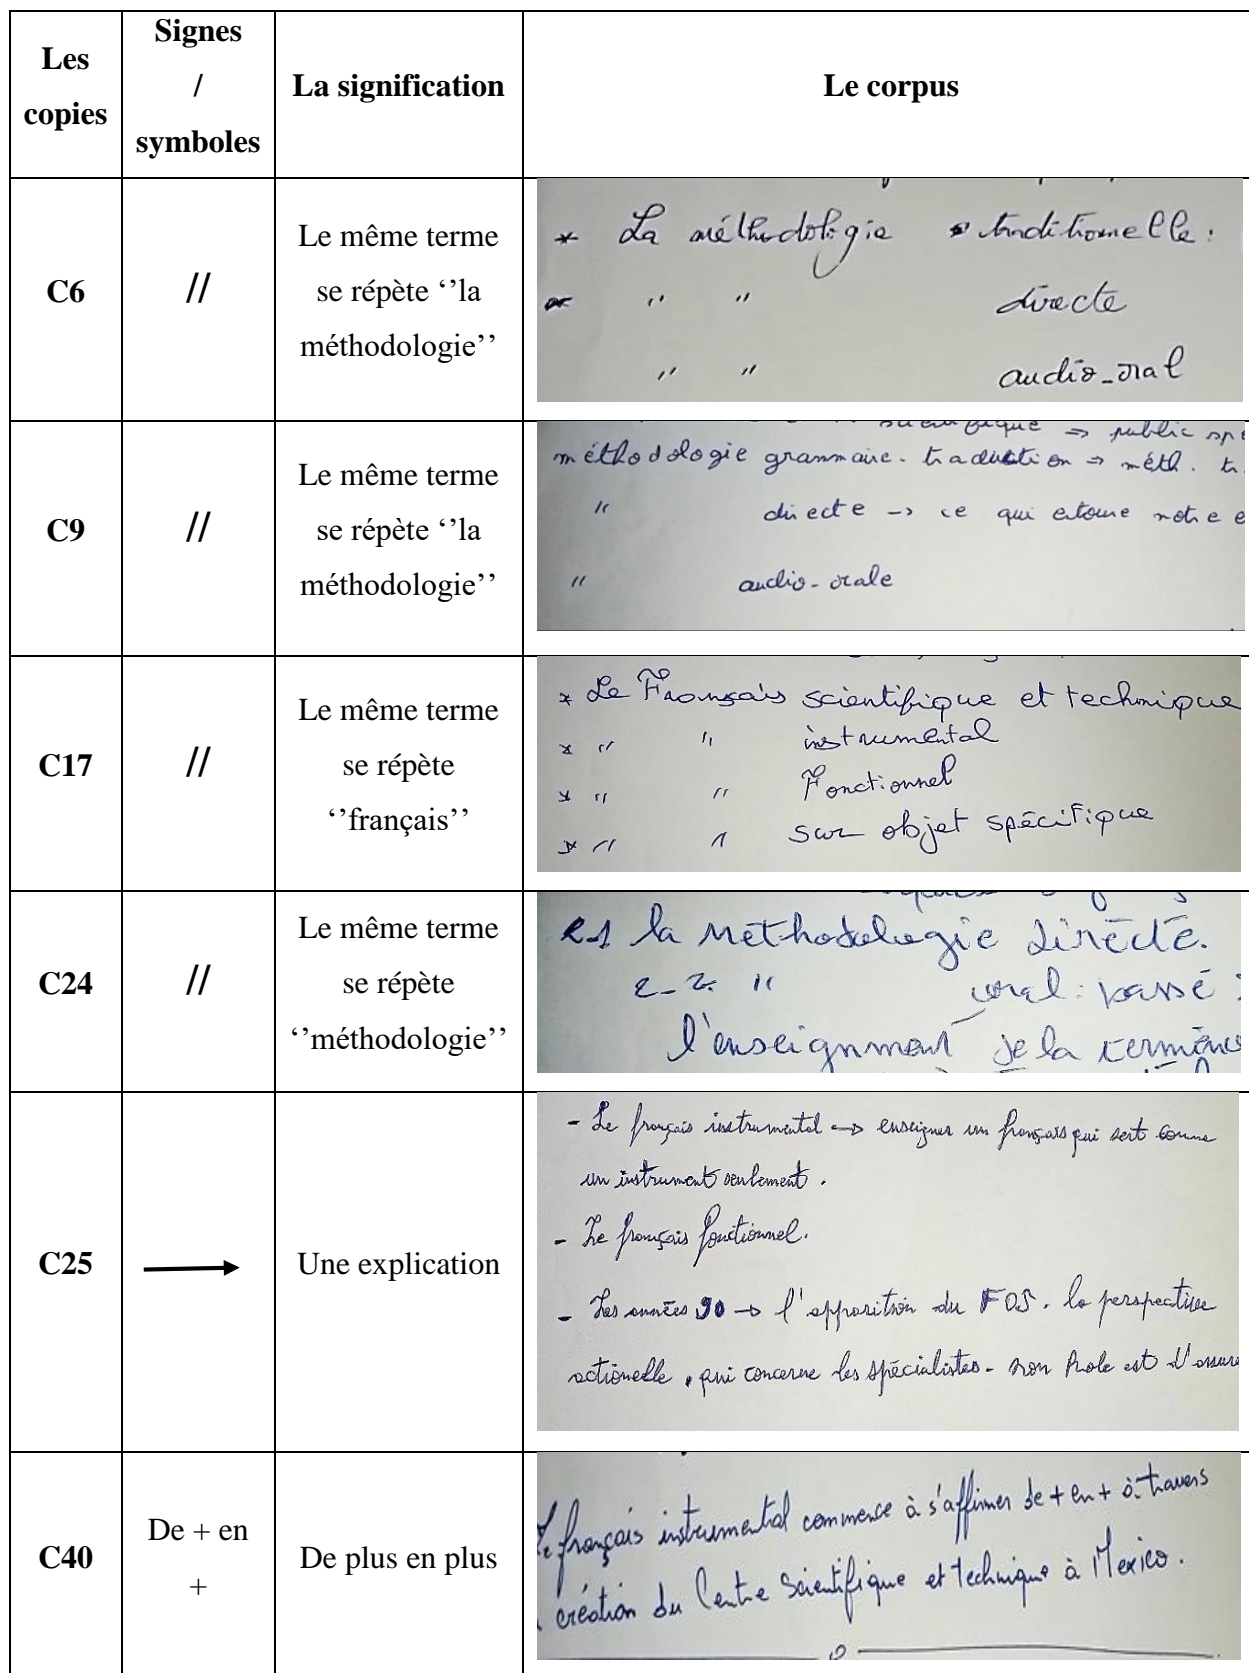 Les copies
Signes / symboles
La signification
Le corpus
C6
//
Le même terme
se répète ‘’la
méthodologie’’
* La méthodologie traditionnelle :
" " directe
" " audio-oral
C9
//
Le même terme
se répète ‘’la
méthodologie’’
scientifique => public spé
méthodologie grammaire. traduction => méth. tr
" directe -> ce qui entoure notre e
" audio-orale
C17
//
Le même terme
se répète
‘’français’’
* Le Français scientifique et technique
* " " instrumental
* " " Fonctionnel
* " " sur objet spécifique
C24
//
Le même terme
se répète
‘’méthodologie’’
2-1 la methodologie directe.
2-2. " oral : passé :
l'enseignment
C25
→
Une explication
- Le français instrumental → enseigner un français qui sert comme
un instrument seulement.
- Le français fonctionnel.
- Les années 90 → l'apparition du FOS. la perspective
actionelle, qui concerne les spécialistes - son Role est d'assure
C40
De + en
+
De plus en plus
Le français instrumental commence à s'affirmer de + en + à travers
création du Centre Scientifique et technique à Mexico.